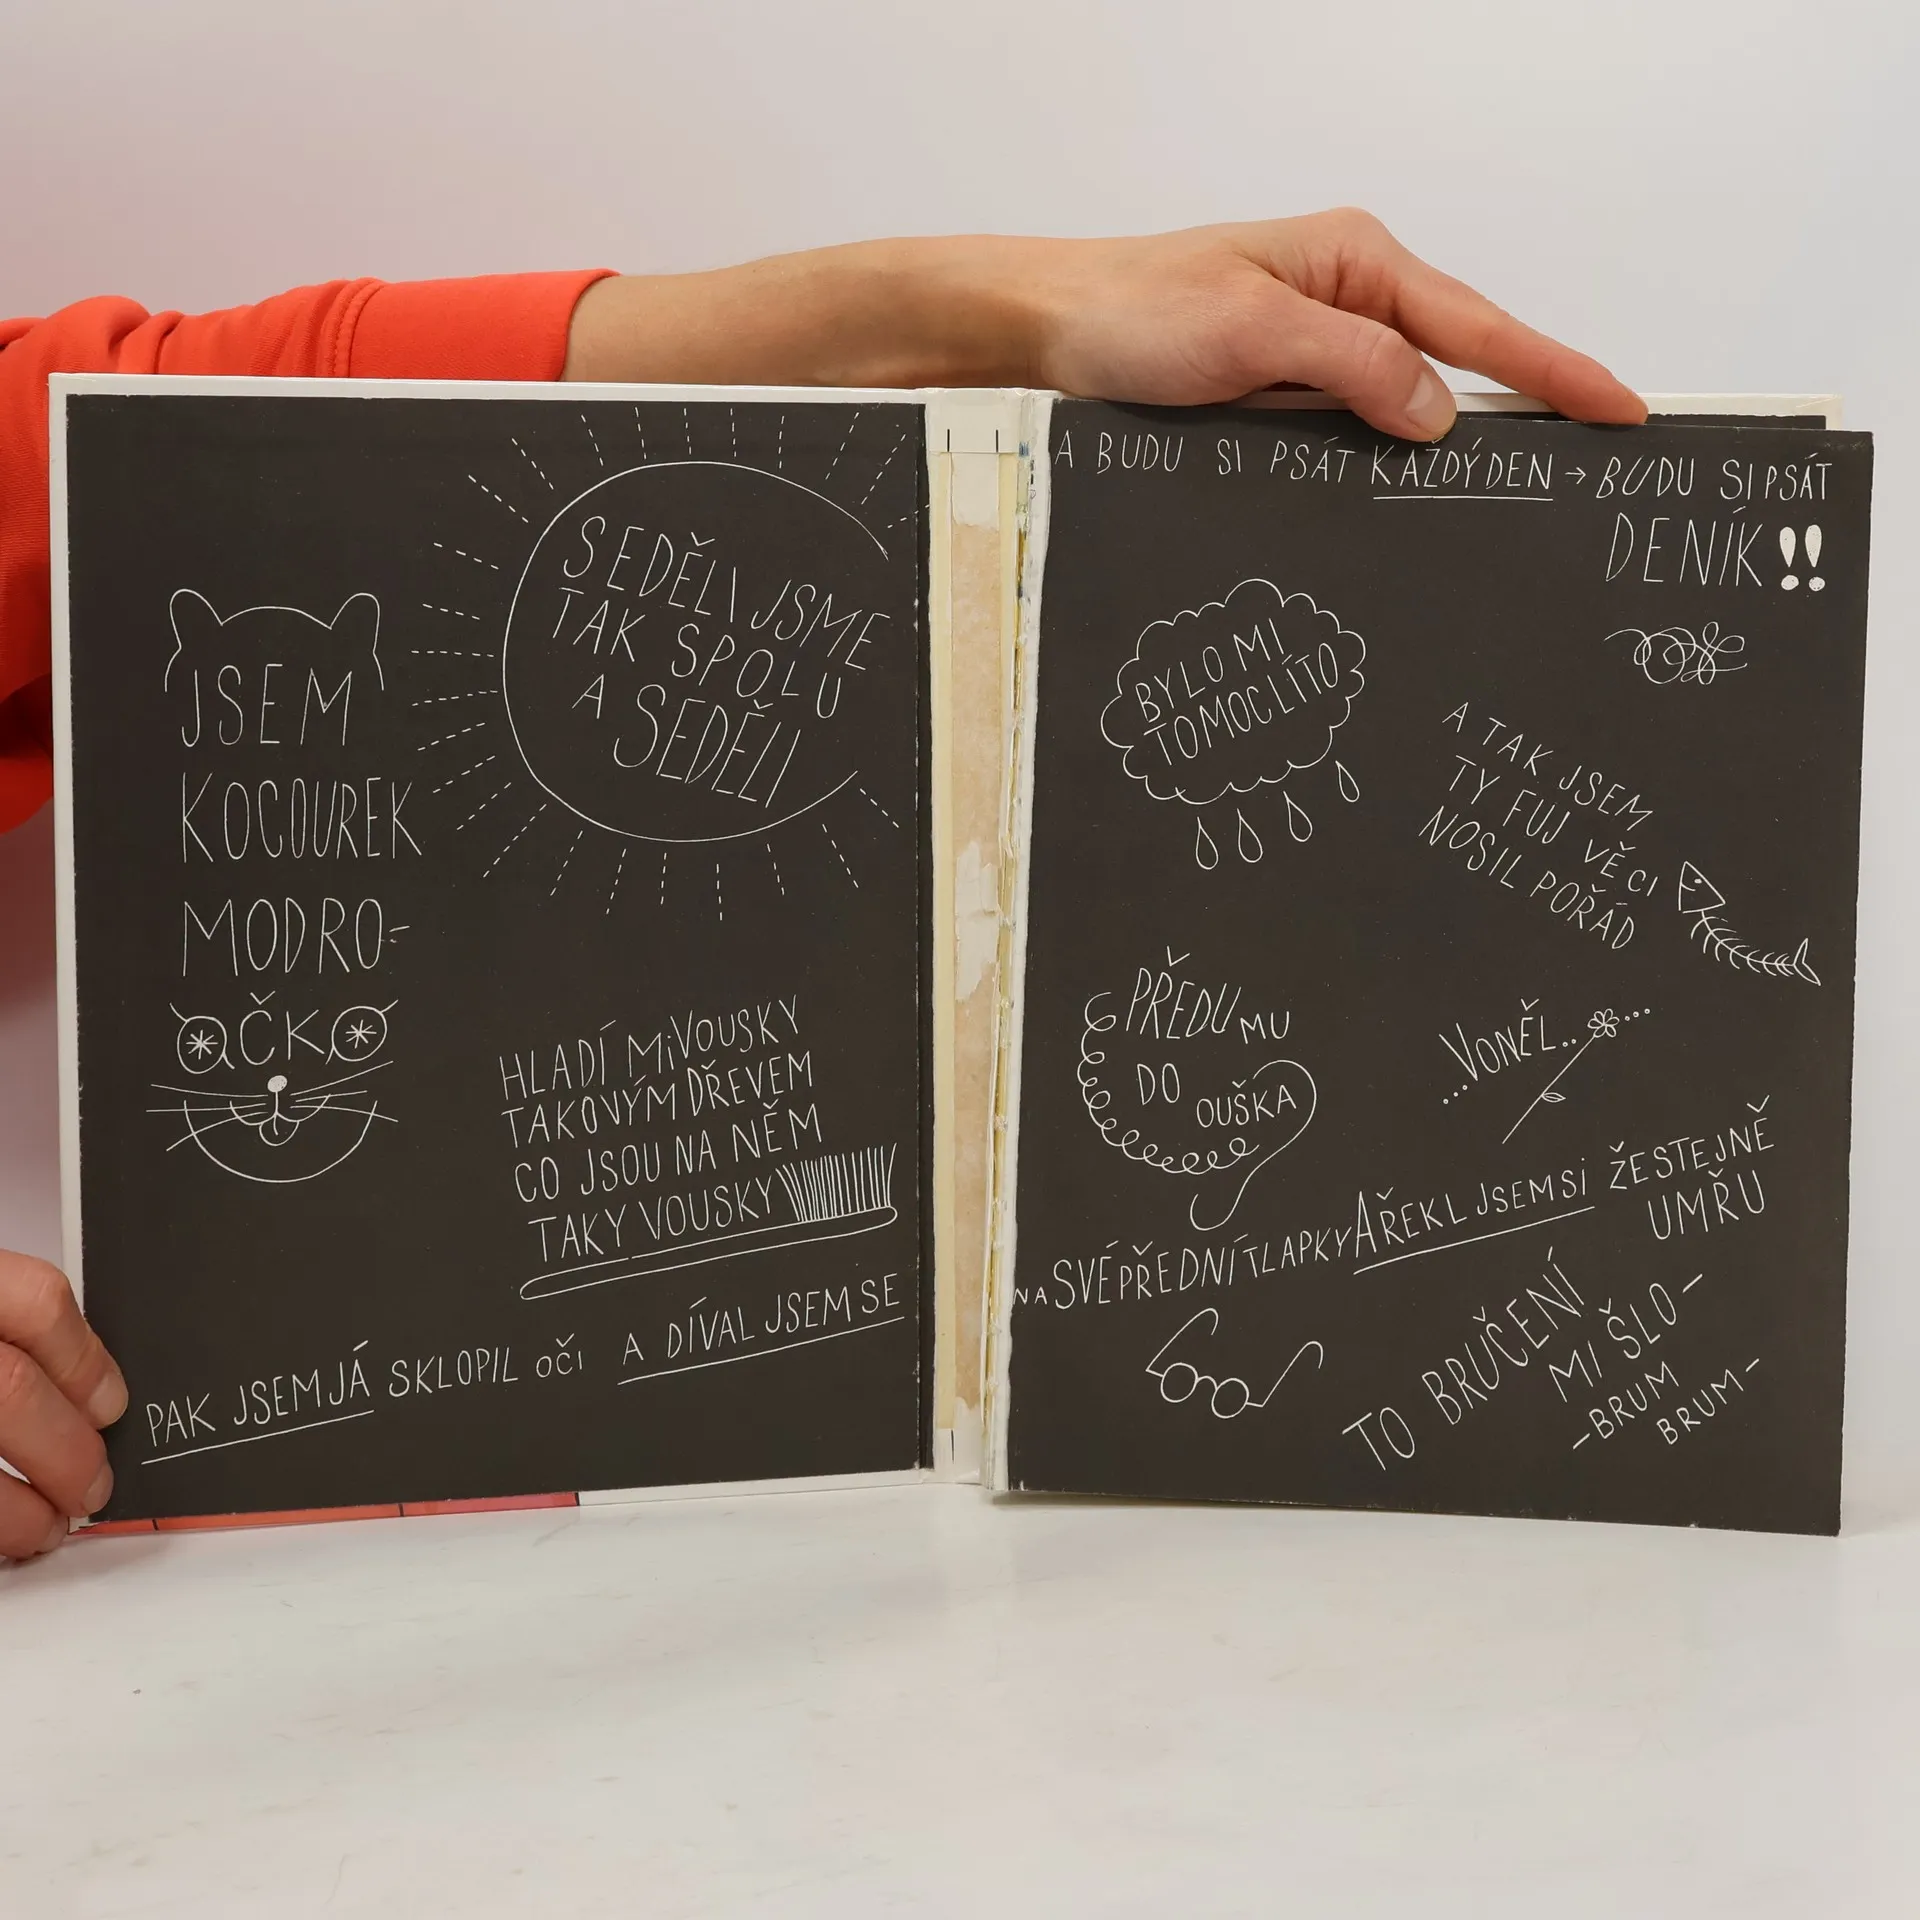 SEDĚLI JSME
TAK SPOLU
A SEDĚLI
JSEM
KOCOUREK
MODRO-
OČKO
HLADÍ MI VOUSKY
TAKOVÝM DŘEVEM
CO JSOU NA NĚM
TAKY VOUSKY
PAK JSEM JÁ SKLOPIL OČI A DÍVAL JSEM SE
A BUDU SI PSÁT KAŽDÝ DEN → BUDU SI PSÁT
DENÍK!!
BYLO MI
TOMOC LÍTO
A TAK JSEM
TY FUJ VĚCI
NOSIL POŘÁD
PŘEDU MU
DO
OUŠKA
...VONĚL.. ...
NA SVÉ PŘEDNÍ TLAPKY A ŘEKL JSEM SI ŽE STEJNĚ
UMŘU
TO BRUČENÍ
MI ŠLO-
-BRUM
BRUM-